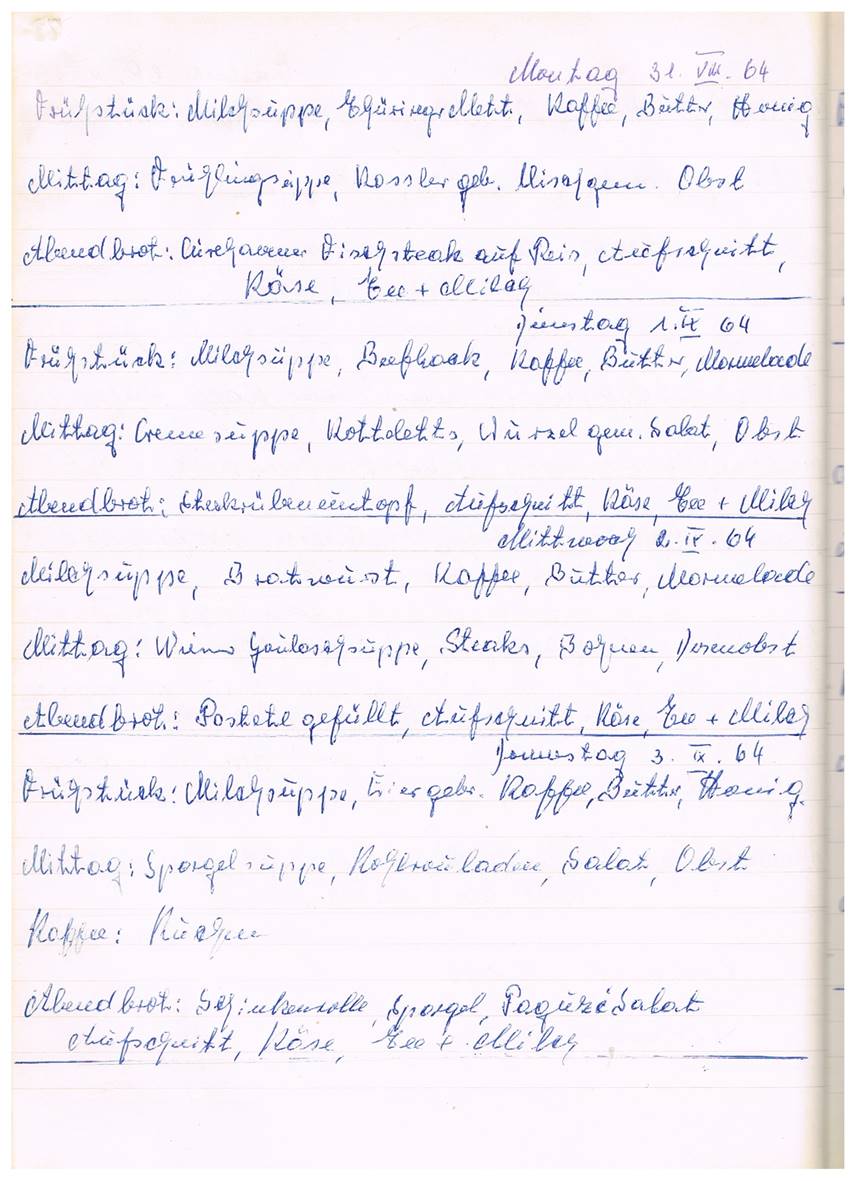 Montag 31. VIII. 64
Frühstück: Milchsuppe, Thüringer Mett, Kaffee, Butter, Honig
Mittag: Frühlingsuppe, Kassler geb. Mischgem. Obst
Abendbrot: Cuxhavener Fischsteak auf Reis, Aufschnitt,
Käse, Tee + Milch
Dienstag 1. IX 64
Frühstück: Milchsuppe, Beefhack, Kaffee, Butter, Marmelade
Mittag: Cremesuppe, Kottoletts, Wurzelgem. Salat, Obst
Abendbrot: Steckrübeneintopf, Aufschnitt, Käse, Tee + Milch
Mittwoch 2. IX. 64
Milchsuppe, Bratwurst, Kaffee, Butter, Marmelade
Mittag: Wiener Goulaschsuppe, Steaks, Bohnen, Dosenobst
Abendbrot: Pastete gefüllt, Aufschnitt, Käse, Tee + Milch
Donnerstag 3. IX. 64
Frühstück: Milchsuppe, Eier gebr. Kaffee, Butter, Honig.
Mittag: Spargelsuppe, Kohlrouladen, Salat, Obst
Kaffee: Kuchen
Abendbrot: Schinkenrolle, Spargel, Salat
Aufschnitt, Käse, Tee + Milch